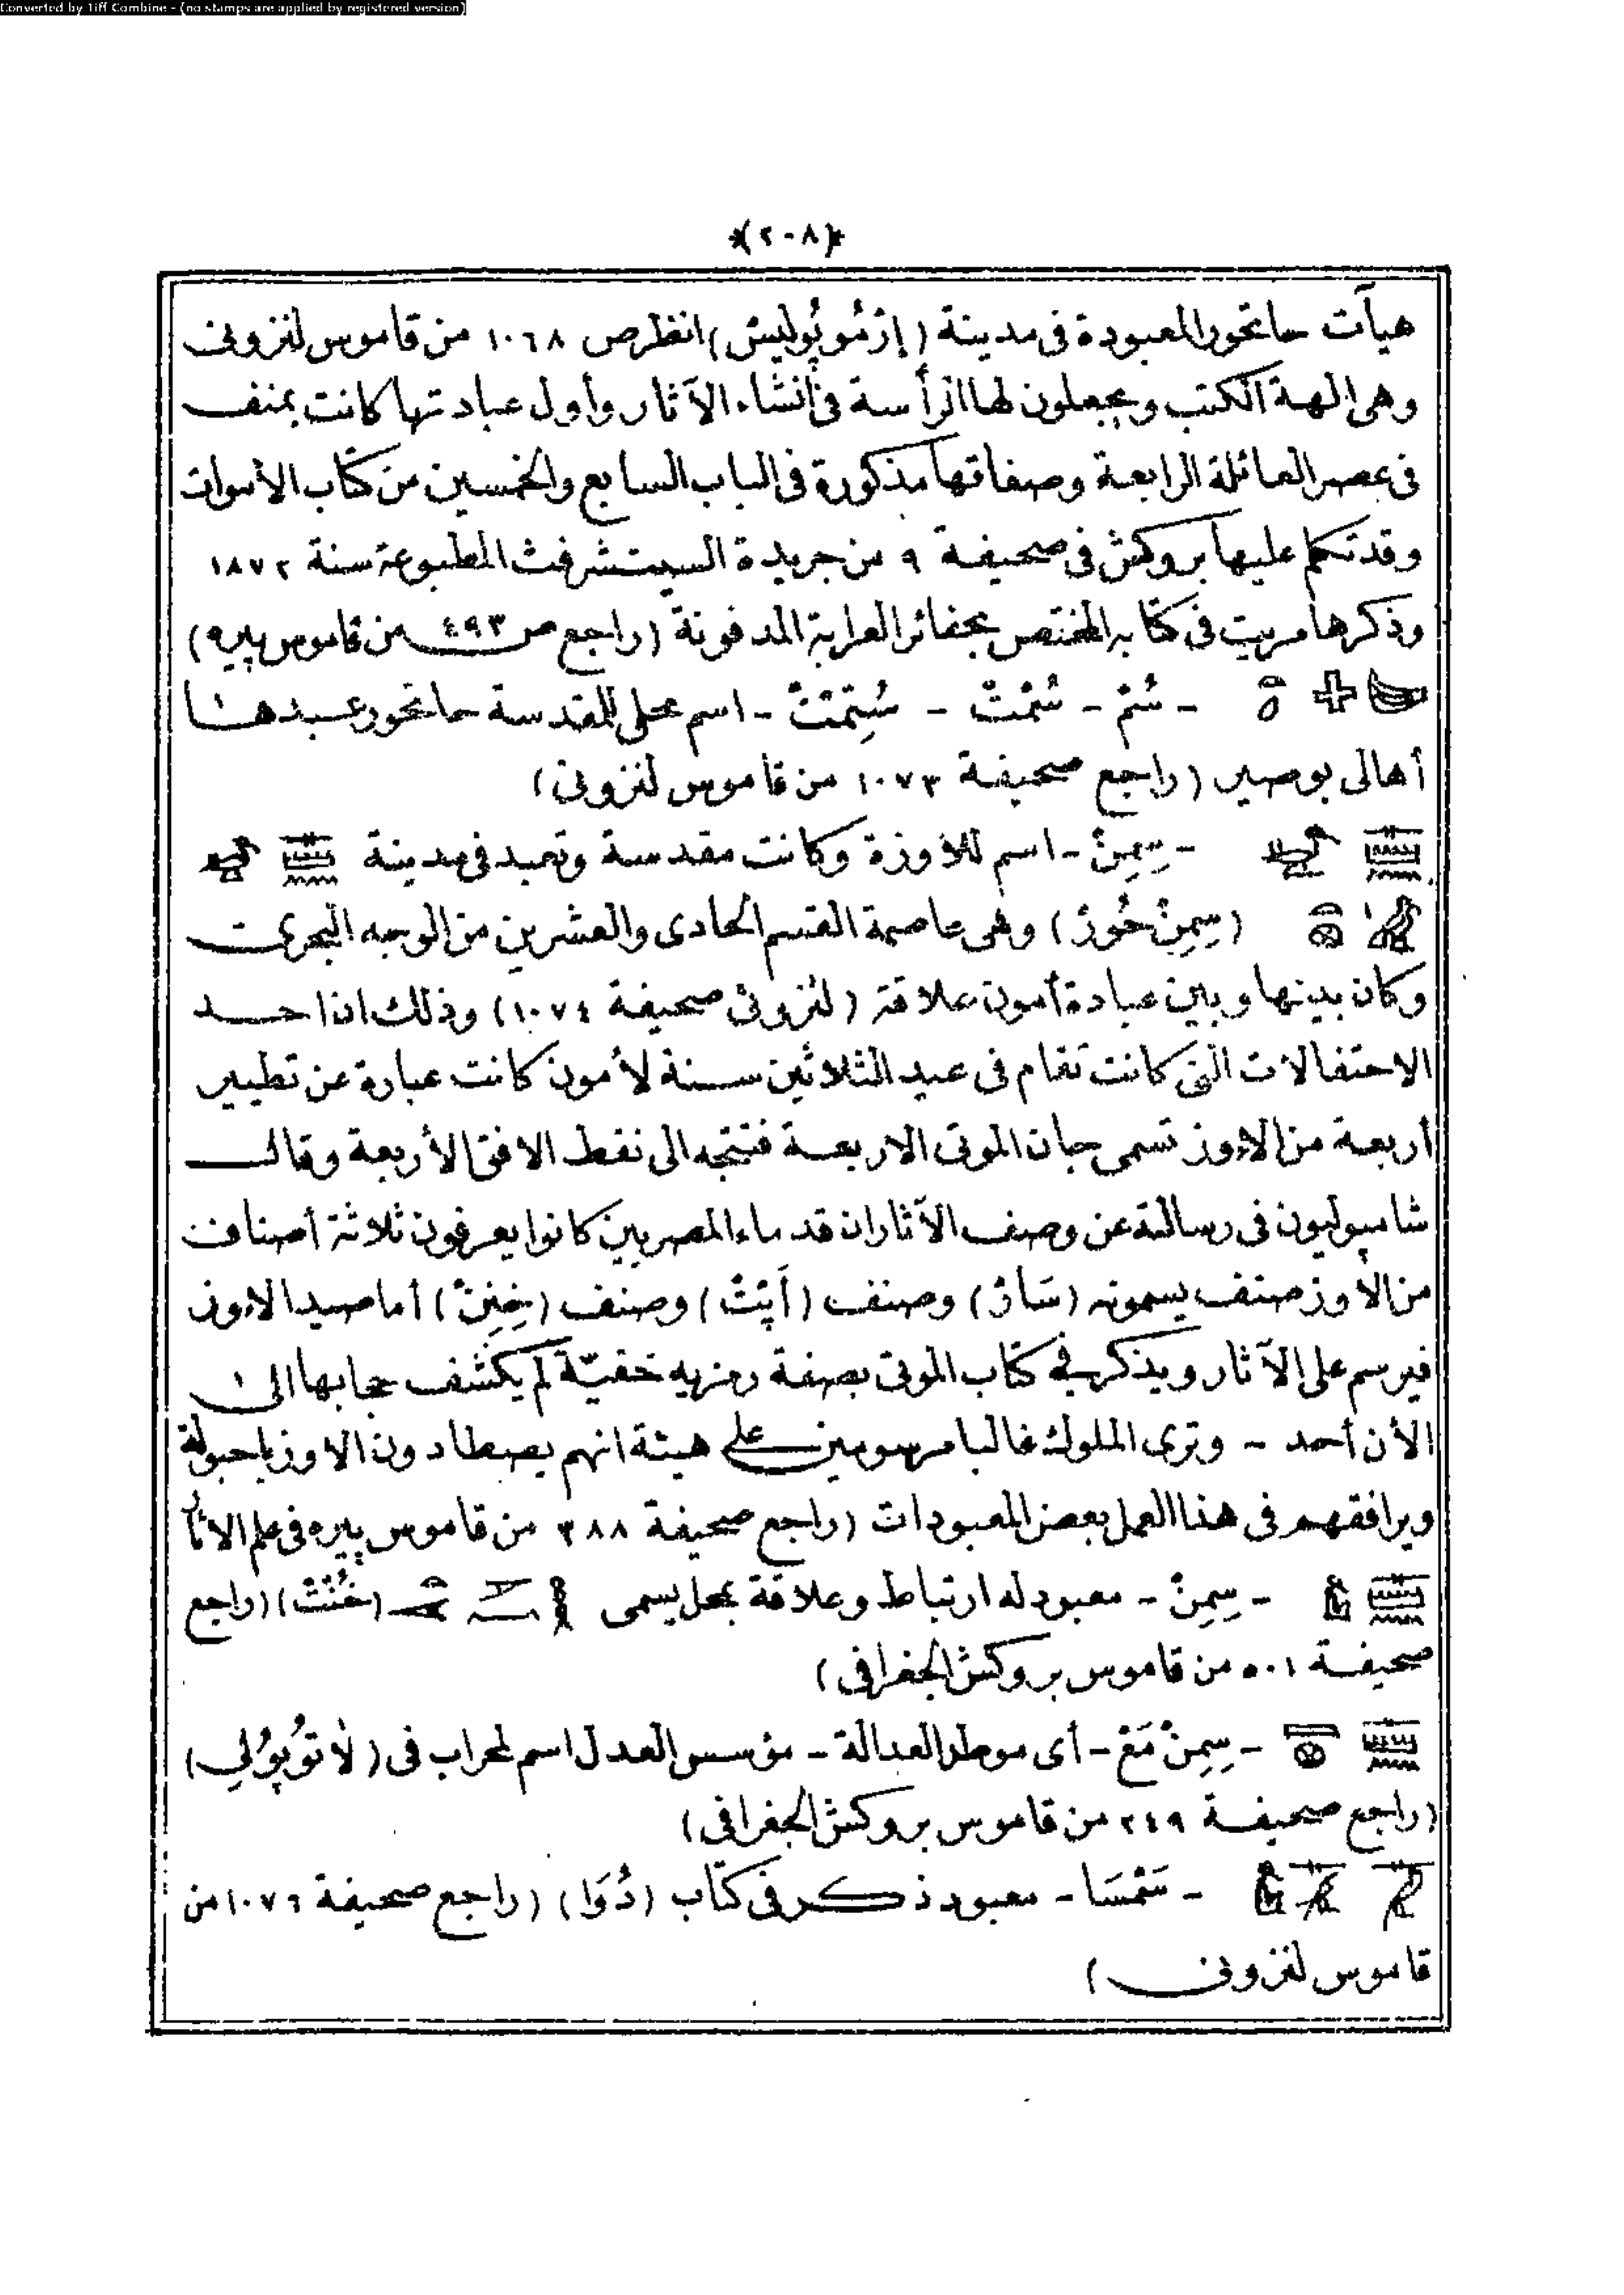 Converted by Tiff Combine - (no stamps are applied by registered version)
﴿٢٠٨﴾
هيآت حاتحور المعبودة فى مدينة (إِرْمُوپُولِيسْ) انظر ص ١٠٦٨ من قاموس لنزونى
وهى الهة الكتب ويجعلون لها الرأسة فى أنشاء الآثار وأول عبادتها كانت بمنف
فى عصر العائلة الرابعة وصفاتها مذكورة فى الباب السابع والخمسين من كتاب الأموات
وقد تكلم عليها بروكش فى صحيفة ٩ من جريدة السيتشرفت المطبوعة سنة ١٨٧٢
وذكرها مريت فى كتابه المختص بحفائر العرابة المدفونة (راجع ص ٤٩٣ من قاموس پيره)
- سْمْ - سْمْتْ - سْتِمْتْ - اسم محلى للمقدسة حاتحور عبدها
أهالى بوصير (راجع صحيفة ١٠٧٣ من قاموس لنزونى)
- سِمِنْ - اسم للاوزة وكانت مقدسة وتعبد فى مدينة
(سِمِنْ حُورْ) وهى عاصمة القسم الحادى والعشرين من الوجه البحرى
وكان بينها وبين عبادة أمون علاقة (لنزونى صحيفة ١٠٧٤) وذلك ان احد
الاحتفالات التى كانت تقام فى عيد الثلاثين سنة لأمون كانت عبارة عن تطيير
أربعة من الاوز تسمى جان الموتى الاربعة فتتجه الى نقط الافق الأربعة وقال
شامپوليون فى رسالته عن وصف الآثار ان قدماء المصريين كانوا يعرفون ثلاثة أصناف
من الاوز صنف يسمونه (سَارْ) وصنف (أَپْتْ) وصنف (خِنِنْ) أما صيد الاوز
فيرسم على الآثار ويذكر فى كتاب الموتى بصفة رمزيه خفيّة لم يكشف حجابها الى
الأن أحد - وترى الملوك غالبا مرسومين على هيئة انهم يصطادون الاوز باحبولة
ويرافقهم فى هذا العمل بعض المعبودات (راجع صحيفة ٣٨٨ من قاموس پيره فى علم الاثار
- سِمِنْ - معبود له ارتباط وعلاقة بمحل يسمى (خُنْتْ) (راجع
صحيفة ٥٠١ من قاموس بروكش الجغرافى)
- سِمِنْ مَعْ - أى موطد العدالة - مؤسس العدل اسم لمحراب فى (لَاتُوپُولِى)
(راجع صحيفة ٢٤٩ من قاموس بروكش الجغرافى)
- سَمْسَا - معبود ذكر فى كتاب (دُوَا) (راجع صحيفة ١٠٧٦ من
قاموس لنزونى)